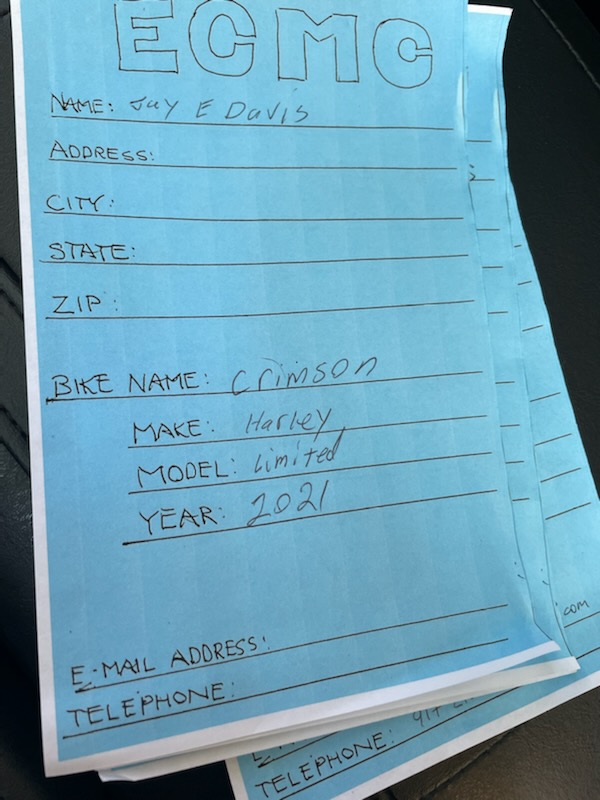 ECMC
NAME: Jay E Davis
ADDRESS:
CITY:
STATE:
ZIP:
BIKE NAME: Crimson
MAKE: Harley
MODEL: Limited
YEAR: 2021
E-MAIL ADDRESS:
TELEPHONE:
.com
TELEPHONE: 917